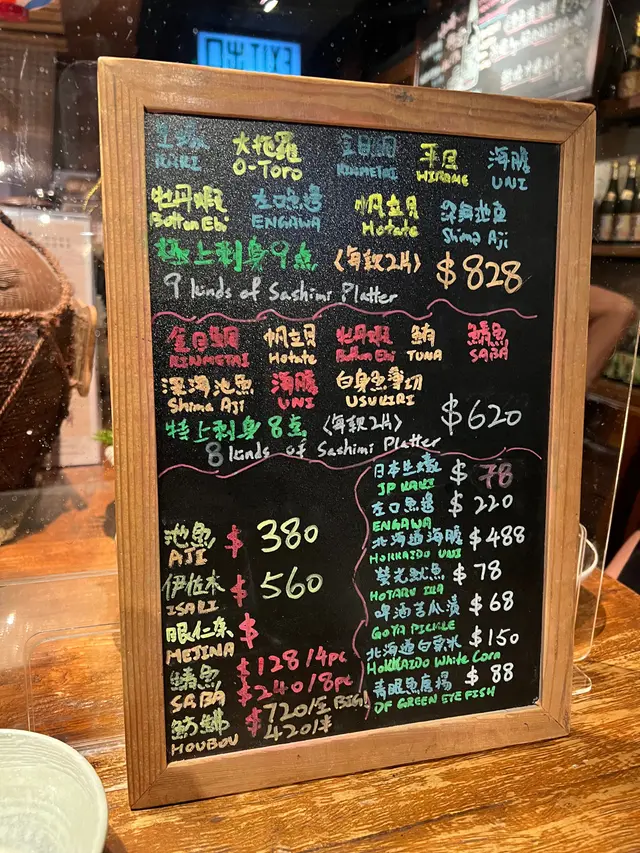 生蠔 大拖羅 金目鯛 平目 海膽
KAKI O-Toro KINMETAI HIRAME UNI
牡丹蝦 左口魚邊 帆立貝 深海池魚
Botton Ebi ENGAWA Hotate Shima Aji
極上刺身9点 〈每款2片〉 $828
9 kinds of Sashimi Platter
金目鯛 帆立貝 牡丹蝦 鮪 鯖魚
KINMETAI Hotate Botton Ebi TUNA SABA
深海池魚 海膽 白身魚薄切
Shima Aji UNI USUKIRI
特上刺身8点 〈每款2片〉 $620
8 kinds of Sashimi Platter
池魚 $380
AJI
伊佐木 $560
ISAKI
眼仁奈 $
MEJINA
鯖魚 $128/4pc
SABA $240/8pc
魴鮄 $720/全 BIG!
HOUBOU 420/半
日本生蠔 $78
JP KAKI
左口魚邊 $220
ENGAWA
北海道海膽 $488
HOKKAIDO UNI
螢光魷魚 $78
HOTARU IKA
啤酒苦瓜漬 $68
GOYA PICKLE
北海道白粟米 $150
HOKKAIDO White Corn
青眼魚廣場 $88
OF GREEN EYE FISH